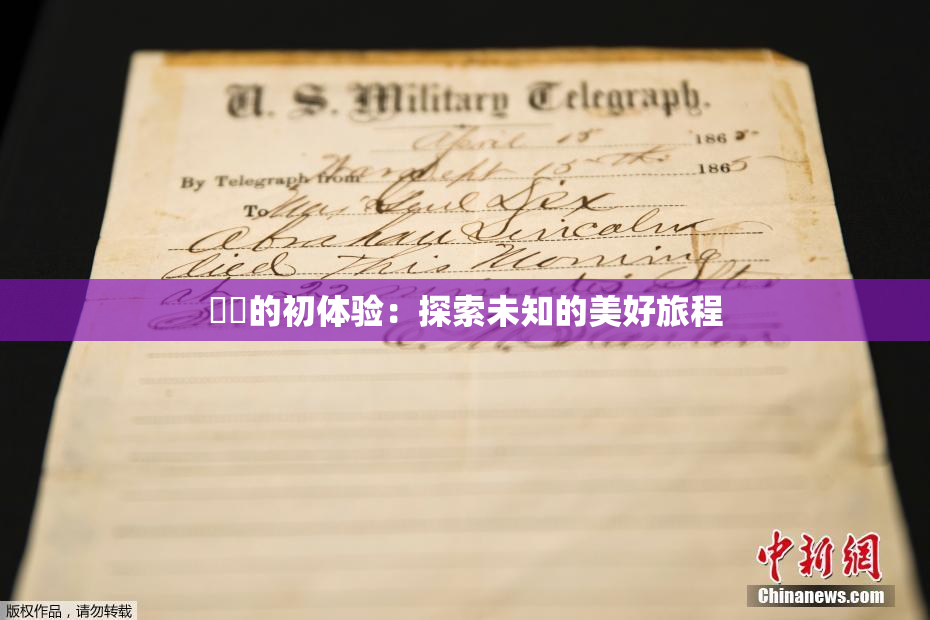 U. S. Military Telegraph.
April 15 1865
By Telegraph from War Dept 15th 1865
To Maj Genl Dix
Abraham Lincoln
died This Morning
at 22 minutes after
的初体验：探索未知的美好旅程
E. M. Stanton
中新網
Chinanews.com
版权作品，请勿转载